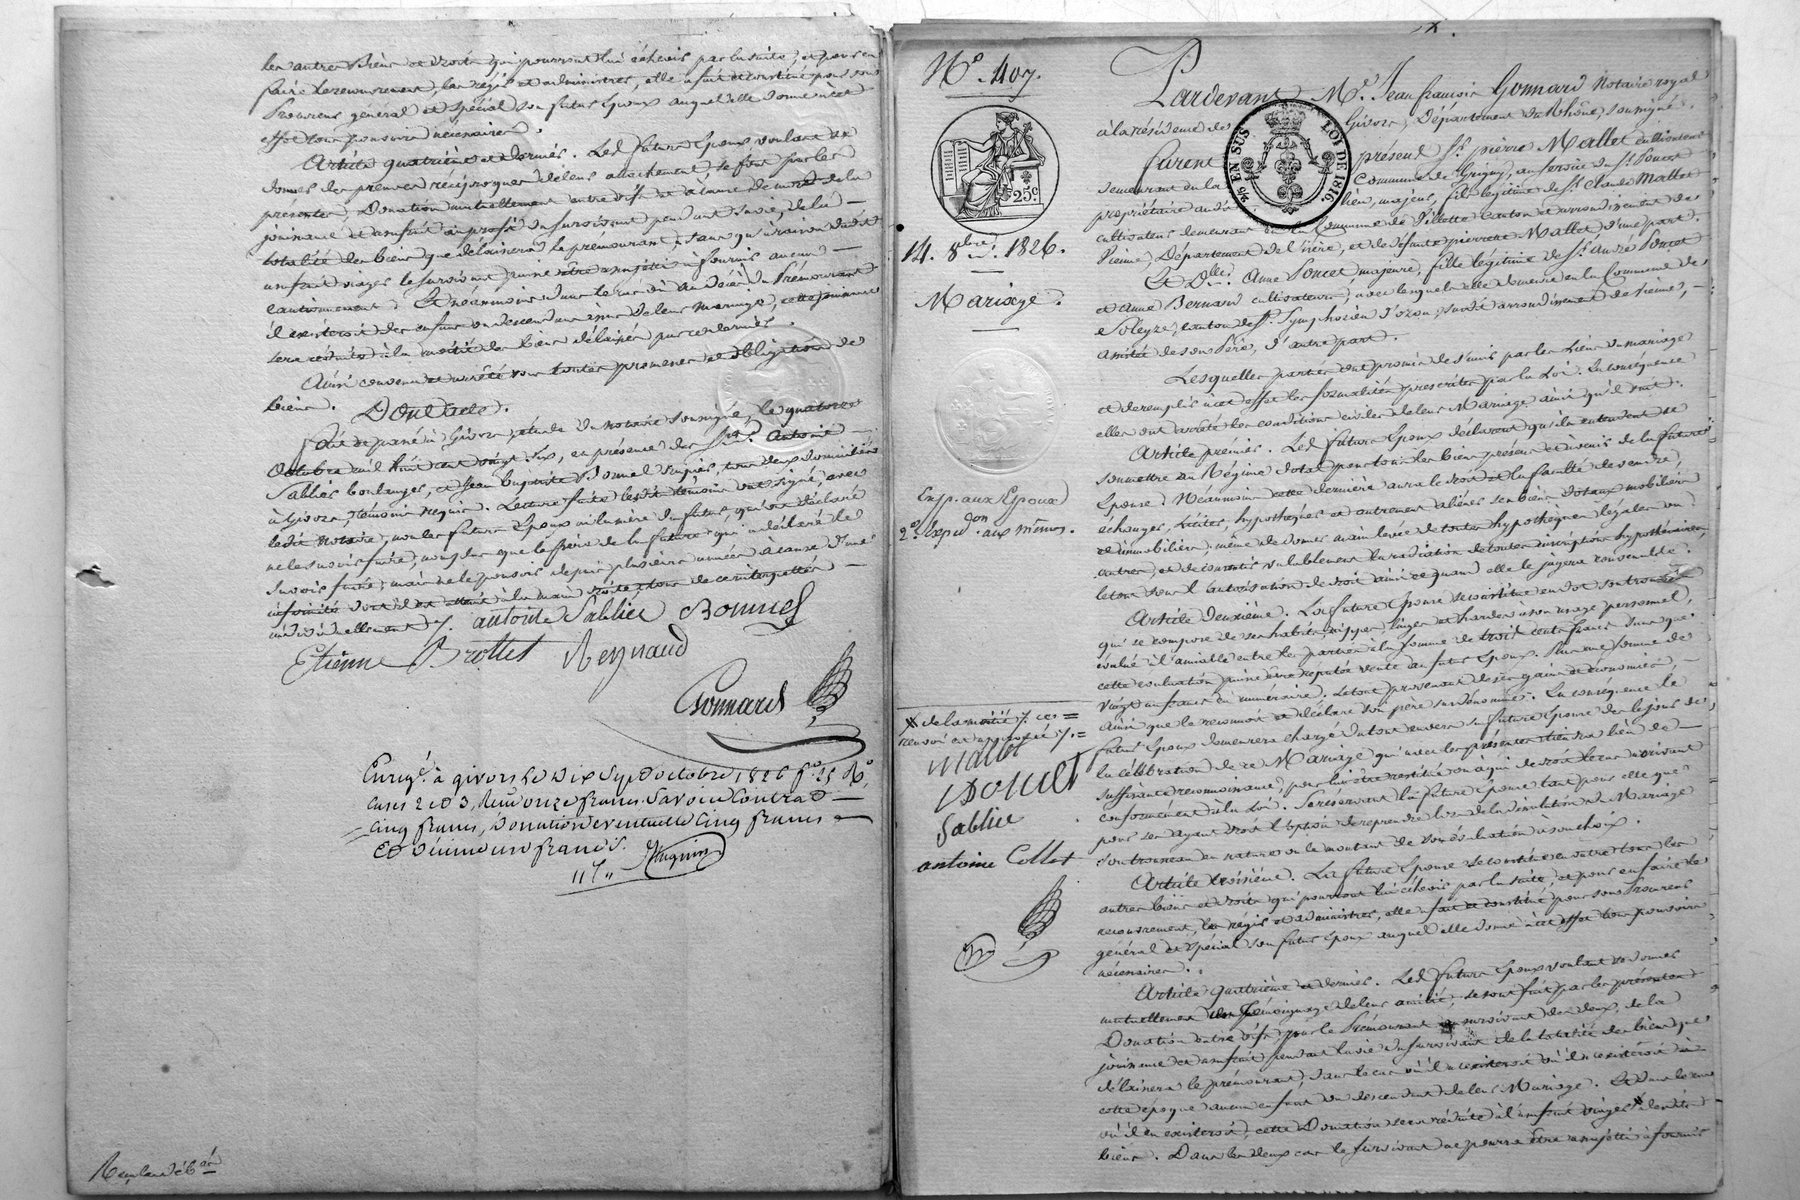 les autres biens et droits qui pourront lui échoir par la suite, et pour en
faire le recouvrement, les régir et administrer, elle a fait et constitué pour son
Procureur général et spécial son futur Epoux auquel elle donne à cet
effet tous pouvoirs nécessaires.
Article quatrième et dernier. Les d. futurs Epoux voulant se
donner des preuves réciproques de leur attachement se font par les
présentes, Donation mutuellement entre vifs et à cause de mort de la
jouissance et usufruit au profit du survivant pendant sa vie, de la
totalité des biens que délaissera le prémourant, sans qu'à raison dudit
usufruit viager le survivant puisse être assujetti à fournir aucun
cautionnement. Et néanmoins dans le cas où au décès du Prémourant
il existeroit des enfans ou descendans issus de leur mariage, cette jouissance
sera réduite à la moitié des biens délaissés par ce dernier.
Ainsi convenu et arrêté sous toutes promesses et obligations de
biens. Dont acte.
Fait et passé à Givors, étude du notaire soussigné, le quatorze
Octobre mil huit cent vingt six, en présence des Srs. Antoine
Sablier boulanger, et Jean Baptiste Bonnel, tous deux domiciliés
à Givors, témoins requis. Lecture faite lesdits témoins ont signé, avec
ledit notaire, non les futurs Epoux ni la mère du futur, qui ont déclaré
ne le savoir faire, non plus que le père de la future qui a déclaré le
savoir faire, mais ne le pouvoir depuis plusieurs années à cause d'une
infirmité dont il est atteint à la main droite, tous de ce interpellés
individuellement ./.
antoine Sablier Bonnel
Etienne Brottet Reynaud
Gonnard
Enregé. à givors le Dix Sept octobre 1826 fo. 25 Ro.
cases 2 et 3, Reçu onze francs. Savoir Contrat
cinq francs, Donation eventuelle cinq francs
Et Décime un franc.
No. 407.
25 c
14. 8bre. 1826.
Mariage.
Exp. aux Epoux
2e. Expdon. aux mêmes.
de la moitié ./. ce
renvoi est approuvé ./.
Mallet
Poncet
Sablier
antoine Collet
Pardevant Me. Jean françois Gonnard Notaire royal
à la résidence de Givors, Département du Rhône, soussigné.
EN SUS LOI DE 1816
furent présent Sr. pierre Mallet cultivateur
demeurant en la Commune de Grigny, au service du Sr. Poncet
propriétaire au dit lieu, majeur, fils légitime de Sr. Claude Mallet
cultivateur demeurant en la Commune de Villette Canton et arrondissement de
Vienne, Département de l'Isère, et de défunte pierrette Mallet, d'une part.
Et Dlle. Anne Poncet majeure, fille légitime de Sr. André Poncet
et Anne Bernard cultivateurs, avec lesquels elle demeure en la Commune de
Soleyze, canton de St. Symphorien d'ozon, susdit arrondissement de Vienne,
assistée de son Père, d'autre part.
Lesquelles parties ont promis de s'unir par les liens du mariage
et de remplir à cet effet les formalités prescrites par la Loi. En conséquence
elles ont arrêté les conditions civiles de leur Mariage ainsi qu'il suit.
Article premier. Les d. futurs Epoux déclarent qu'ils entendent se
soumettre au Régime dotal pour tous les biens présens et à venir de la future
Epouse. Néanmoins cette dernière aura le droit et la faculté de vendre,
échanger, céder, hypothéquer et autrement aliéner ses biens dotaux mobiliers
et immobiliers, même de donner main levée de toutes hypothèques légales ou
autres, et de consentir valablement la radiation de toutes inscriptions hypothécaires,
le tout sous l'autorisation de droit ainsi et quand elle le jugera convenable.
Article deuxième. La future Epouse se constitue en dot son trousseau
qui se compose de ses habits, nippes, linges et hardes à son usage personnel,
évalué à l'amiable entre les parties à la somme de trois cents francs sans que
cette évaluation puisse être réputée vente au futur Epoux. Plus une somme de
vingt francs en numéraire. Le tout provenant de ses gains et économies,
ainsi que le reconnoit et déclare son père susdénommé. En conséquence le
futur Epoux demeurera chargé du tout envers sa future Epouse dès le jour de
la célébration de ce Mariage qui avec les présentes tiendra lieu de
suffisante reconnoissance, pour lui être restitué ou à qui de droit le cas arrivant
conformément à la Loi. Se réservant la future Epouse tant pour elle que
pour ses ayant droit l'option de reprendre lors de la dissolution du Mariage
son trousseau en nature ou le montant de son évaluation à son choix.
Article troisième. La future Epouse se constitue en outre tous les
autres biens et droits qui pourront lui échoir par la suite, et pour en faire le
recouvrement, les régir et administrer, elle a fait et constitué pour son Procureur
général et spécial son futur Epoux auquel elle donne à cet effet tous pouvoirs
nécessaires.
Article quatrième et dernier. Les d. futurs Epoux voulant se donner
mutuellement un témoignage de leur amitié, se sont fait par les présentes
Donation entre vifs, pour le Prémourant au survivant des deux, de la
jouissance et usufruit pendant la vie du survivant de la totalité des biens que
délaissera le prémourant, dans le cas où il n'existeroit à
cette époque aucun enfant ou descendant de leur Mariage. Et dans le cas
où il en existeroit, cette Donation sera réduite à l'usufruit viager desdits
biens. Dans les deux cas le survivant ne pourra être assujetti à fournir